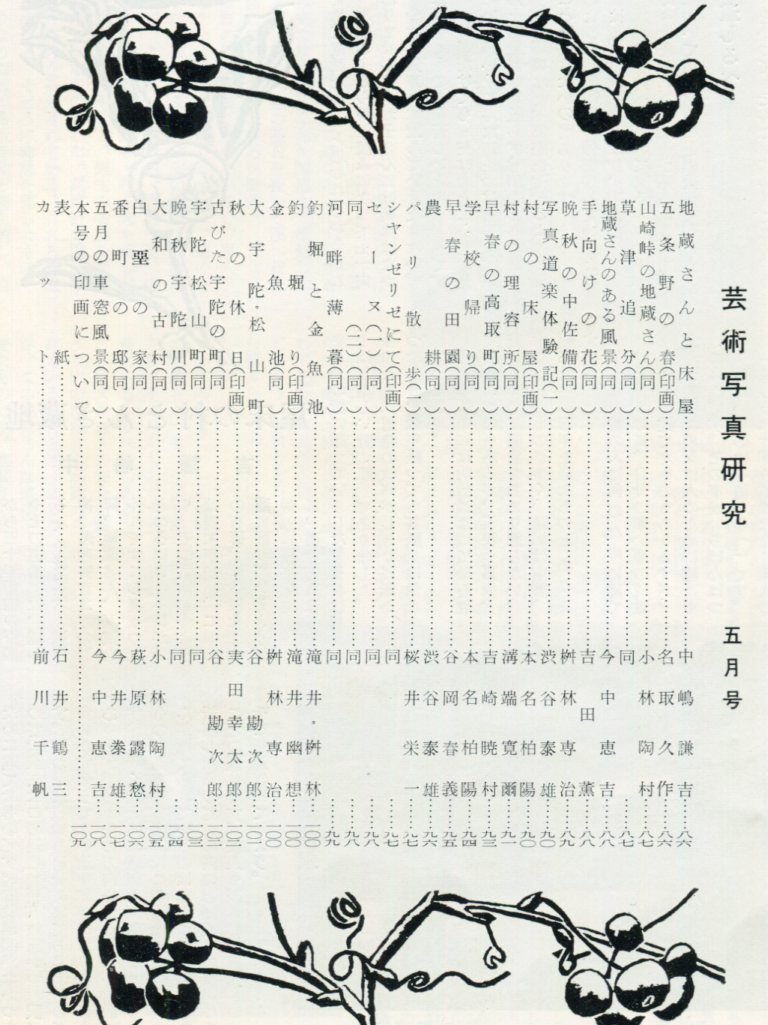 芸術写真研究 五月号
地蔵さんと床屋……中嶋謙吉……八六
五条野の春(印画)……名取久作……八六
山崎峠の地蔵さん(同)……小林陶村……八七
草津追分(同)……同……八七
地蔵さんのある風景(同)……今中恵吉……八八
手向けの花(同)……吉田薫……八八
晩秋の中佐備(同)……桝林専治……八九
写真道楽体験記(一)……渋谷泰雄……九〇
村の床屋(印画)……本名柏陽……九〇
村の理容所(同)……溝端寛爾……九一
早春の高取町(同)……吉崎暁村……九三
学校帰り(同)……本名柏陽……九四
早春の田園(同)……谷岡春義……九五
農耕(同)……渋谷泰雄……九六
パリ散歩(一)……桜井栄一……九七
シヤンゼリゼにて(印画)……同……九七
セーヌ(一)(同)……同……九八
同(二)(同)……同……九八
河畔薄暮(同)……同……九九
釣堀と金魚池……滝井・桝林……一〇〇
釣堀り(印画)……滝井幽想……一〇〇
金魚池(同)……桝林専治……一〇〇
大宇陀・松山町……谷勘次郎……一〇一
秋の休日(印画)……実田幸太郎……一〇三
古びた宇陀の町(同)……谷勘次郎……一〇三
宇陀松山町(同)……同……一〇三
晩秋宇陀川(同)……同……一〇四
大和の古村(同)……小林陶村……一〇五
白堊の家(同)……萩原露愁……一〇六
番町の邸(同)……今井拳雄……一〇七
五月の車窓風景(同)……今中恵吉……一〇八
本号の印画について……一〇九
表紙……石井鶴三
カット……前川千帆